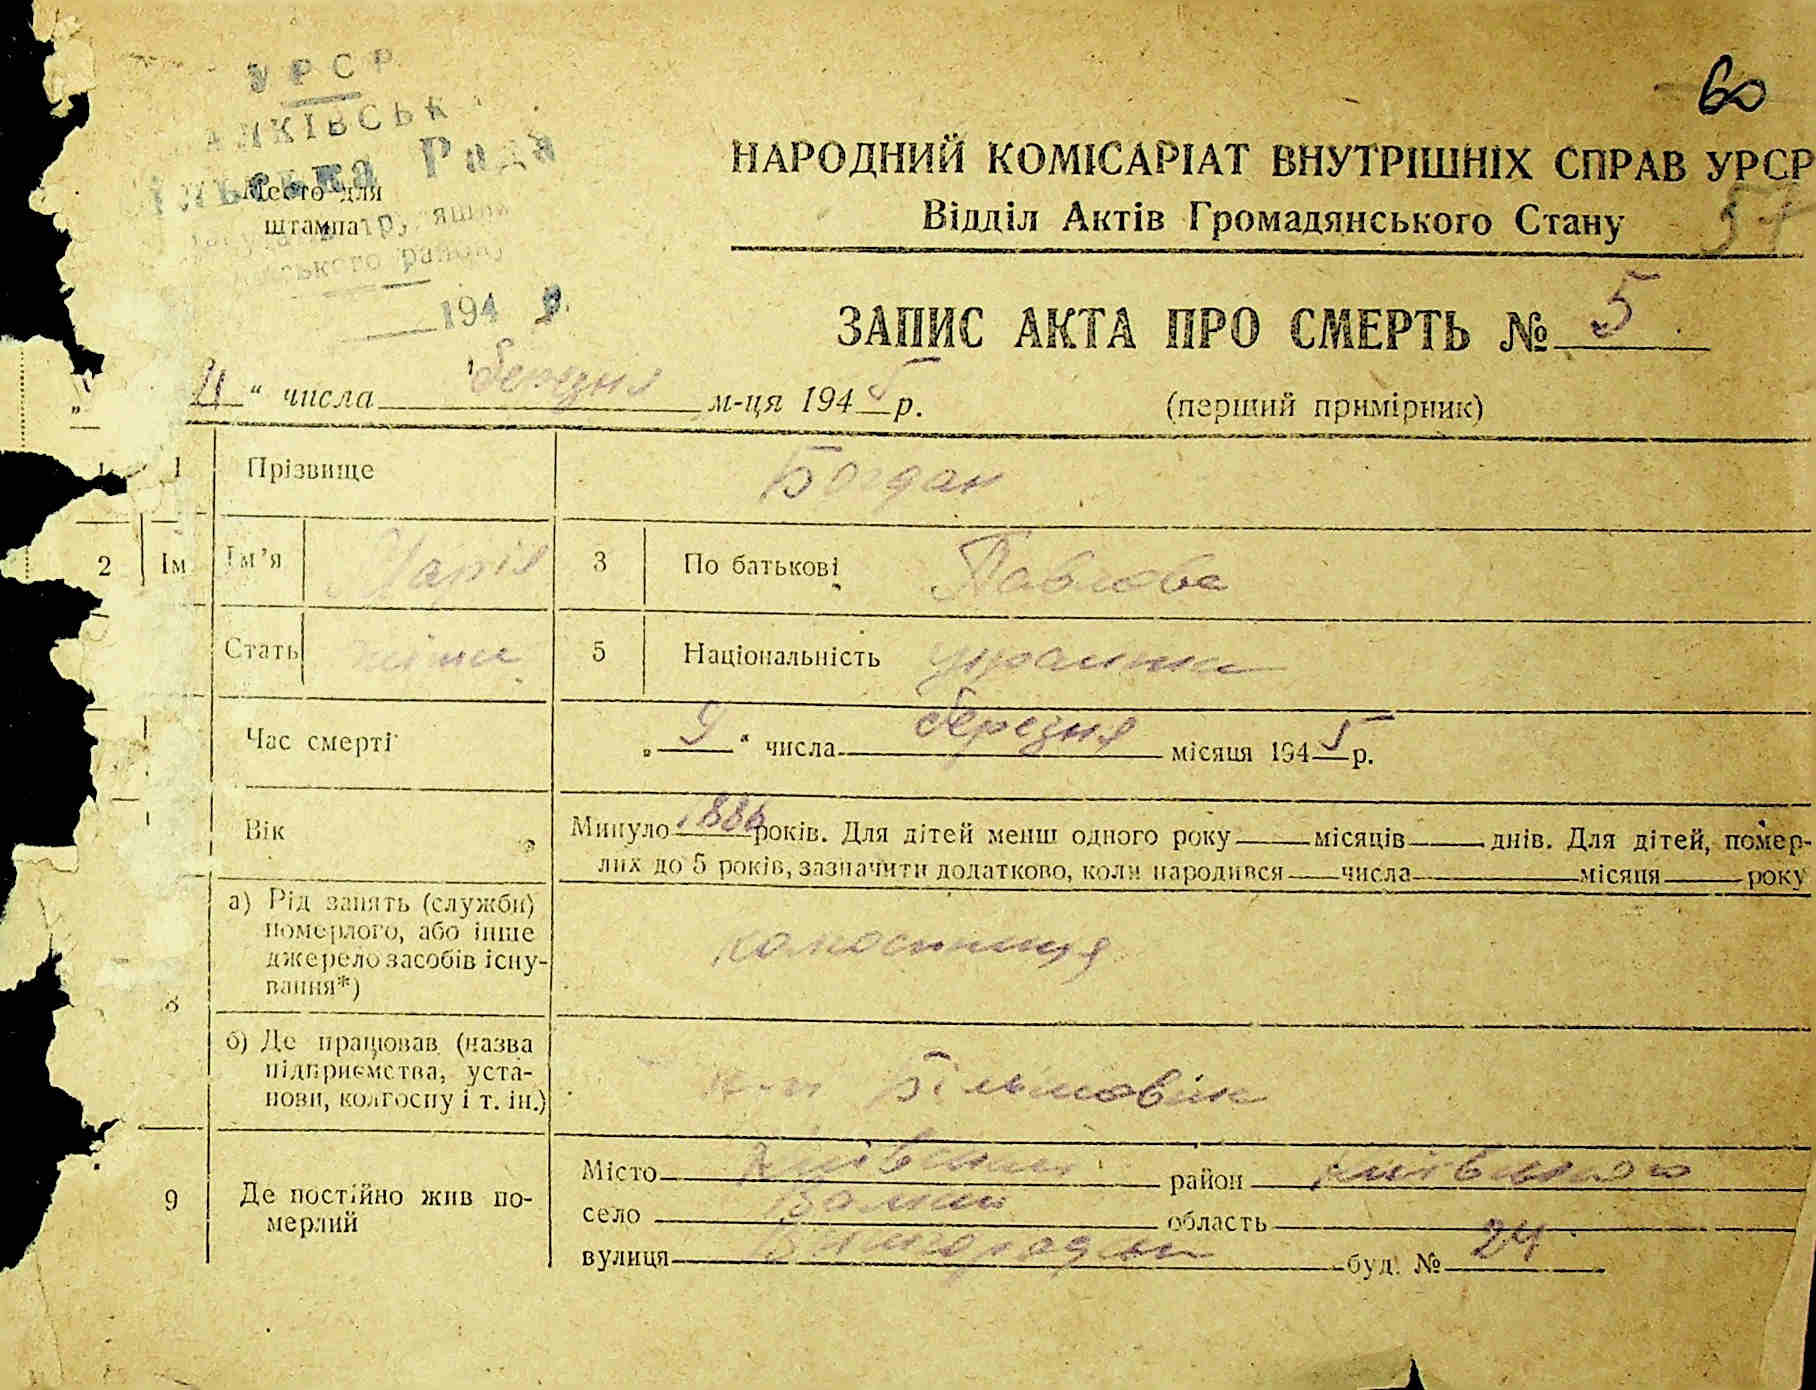 УРСР
60
НАРОДНИЙ КОМІСАРІАТ ВНУТРІШНІХ СПРАВ УРСР
Рада
Место для
штампа
Відділ Актів Громадянського Стану
57
194
ЗАПИС АКТА ПРО СМЕРТЬ № 5
„11“ числа березня м-ця 1945 р.
(перший примірник)
1 Прізвище Богдан
2 Ім Ім’я Марія 3 По батькові Павлова
Стать жіноч 5 Національність українка
Час смерті „9“ числа березня місяця 1945 р.
Вік Минуло 1886 років. Для дітей менш одного року місяців днів. Для дітей, помер-
лих до 5 років, зазначити додатково, коли народився числа місяця року
а) Рід занять (служби)
померлого, або інше
джерело засобів існу-
вання*)
колгоспниця
8
б) Де працював (назва
підприємства, уста-
нови, колгоспу і т. ін.)
к-п Більшовик
9 Де постійно жив по-
мерлий
Місто район
село область
вулиця буд. № 24